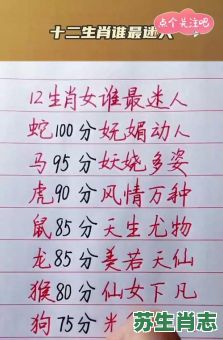 十二生肖谁最迷人
点个关注吧
12生肖女谁最迷人
蛇100分妩媚动人
马95分妖娆多姿
虎90分风情万种
鼠85分天生尤物
龙85分美若天仙
猴80分仙女下凡
狗75分
苏生肖志